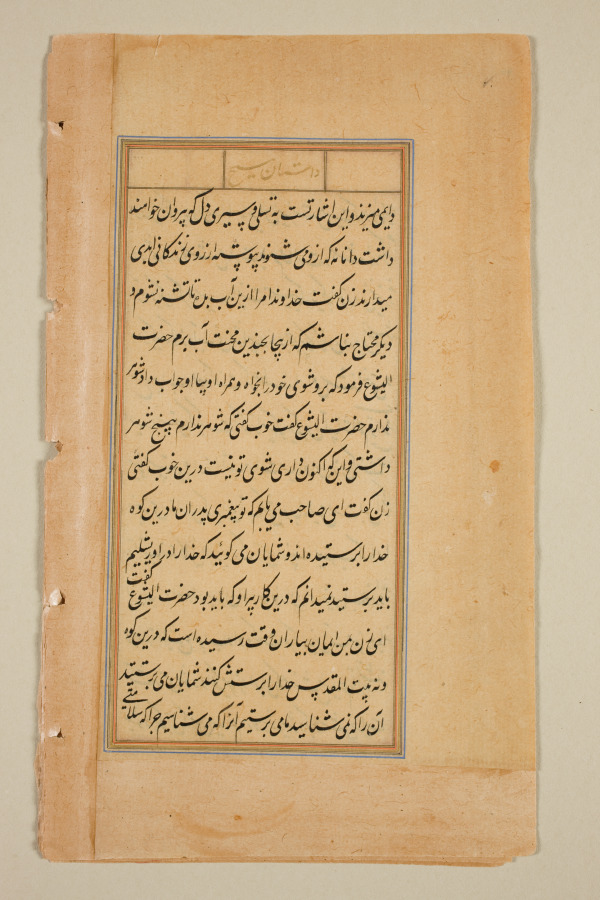 داستان مسیح
دایمی میریزند و این اشارتست به تسلی و سیری دل که پیروان خواهند
داشت دانا نه که از وی شنوند پیوسته ارزوی زندکانی ابدی
میدارند زن کفت خداوندا مرا ازین آب بده تا تشنه نشوم و
دیکر محتاج نباشم که از پنجا بچندین محنت آب برم حضرت
الیشوع فرمود که برو شوی خود را بخواه و همراه او بیا او جواب داد شوهر
ندارم حضرت الیشوع کفت خوب کفتی که شوهر ندارم پنج شوهر
داشتی و این که اکنون داری شوی تو نیست درین خوب کفتی
زن کفت ای صاحب می یابم که تو پیغمبری پدران ما درین کوه
خدا را پرستیده اند و شمایان می کوئید که خدا را در اورشلیم
باید پرستید نمیدانم که درین کار پیرو که باید بود حضرت الیشوع کفت
ای زن بمن ایمان بیار ان وقت رسیده است که درین کوه
و نه بیت المقدس خدا را پرستش کنند شمایان می پرستید
آن را که نمی شناسید ما می پرستیم آنرا که می شناسیم چرا که سلامتی